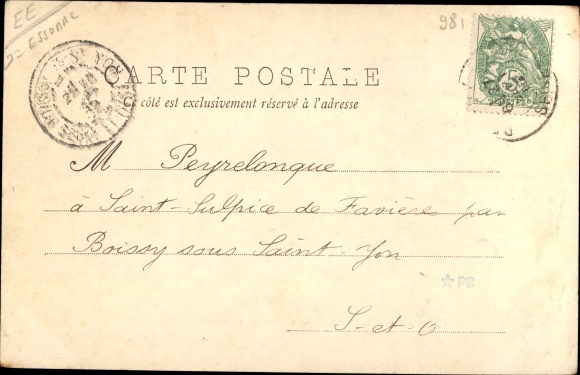 EE
ESSONNE
981
CARTE POSTALE
côté est exclusivement réservé à l'adresse
5
M Peyrelongue
à Saint-Sulpice de Favières par
Boissy sous Saint-Yon
★ PB
S-et-O